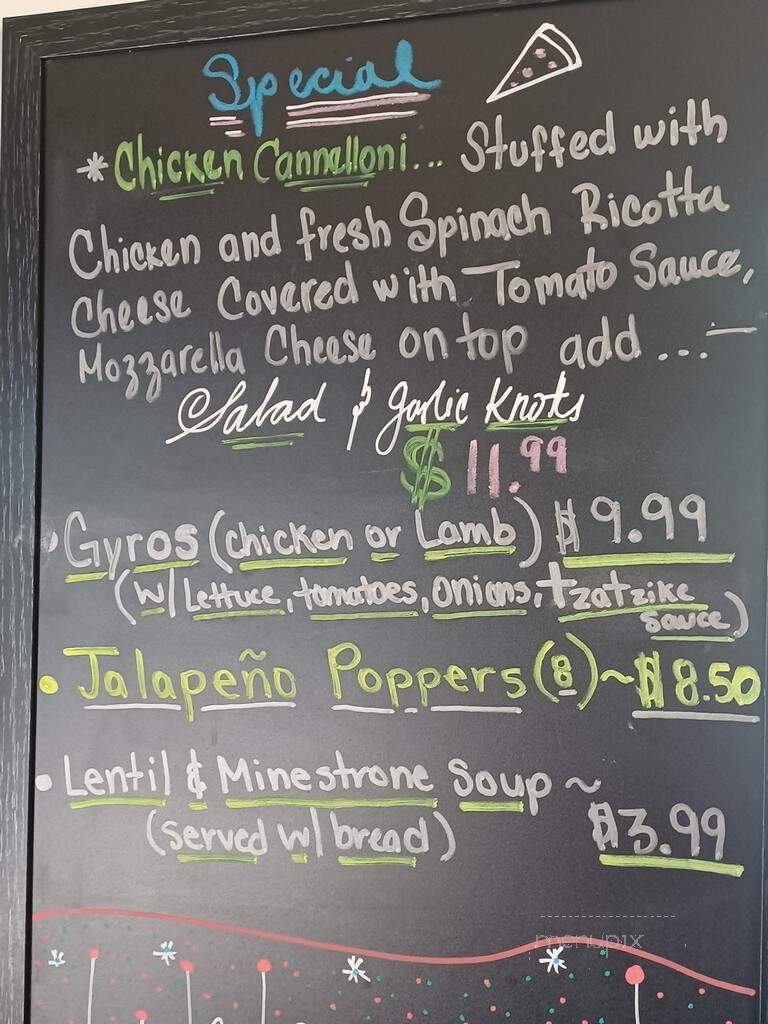 Special
* Chicken Cannelloni... Stuffed with
Chicken and fresh Spinach Ricotta
Cheese Covered with Tomato Sauce,
Mozzarella Cheese on top add ...
Salad & garlic Knots
$ 11.99
• Gyros (chicken or Lamb) $9.99
(w/ Lettuce, tomatoes, onions, tzatzike
sauce)
• Jalapeño Poppers (8) ~ $8.50
• Lentil & Minestrone Soup ~
(served w/ bread) $3.99
menupix